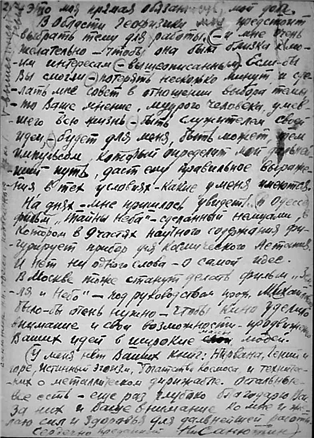 Это моя прямая обязанность, мой долг.
В области Геофизики мне предстоит
выбрать тему для работы (–и мне очень
желательно – чтобы она была близка к моим
интересам (–вышеописанным). Если бы
Вы смогли – потерять несколько минут и сделать
мне совет в отношении выбора темы,
то Ваше мнение, мудрого человека, умевшего
всю жизнь – быть служителем своей
идеи (–будет для меня, быть может, тем
импульсом, который определит мой дальнейший
путь, даст ему правильное выражение
в тех условиях – какие у меня имеются.
На днях – мне пришлось увидеть в Одессе
фильм, "Тайны неба" – сделанной немцами, в
котором в 9 частях научного содержания фигурирует
прибор для космического летания.
И нет ни одного слова – о самой идее.
В Москве тоже станут делать фильм – "Земля
и Небо" – под руководством проф. Михайлова.
было-бы очень нужно – чтобы кино уделило
внимание и свои возможности – продвижению
Ваших идей в широкие слои людей.
(У меня нет Ваших книг:
горе,
о металлическом дирижабле. Остальные
все есть – еще раз глубоко благодарю Вас
за них и Ваше внимание ко мне и желаю
сил и здоровья для дальнейшей работы